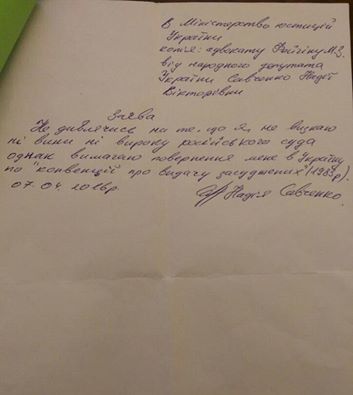 В Міністерство юстицей
України
копія: адвокату Фейгіну М.З.
від народного депутата
України Савченко Надії
Вікторівни
Заява
Не дивлячись на те, що я, не визнаю
ні вини ні вироку російського суда
однак вимагаю повернення мене в Україну
по "конвенції про видачу засуджених" (1983р).
07.04.2016р. Надія Савченко.